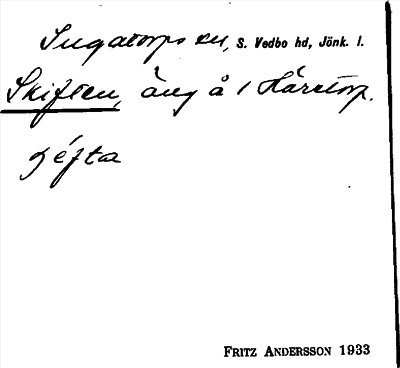 Ingatorps sn, S. Vedbo hd, Jönk. l.
Skiften, äng å 1 Häretorp.
ʃéfta
FRITZ ANDERSSON 1933